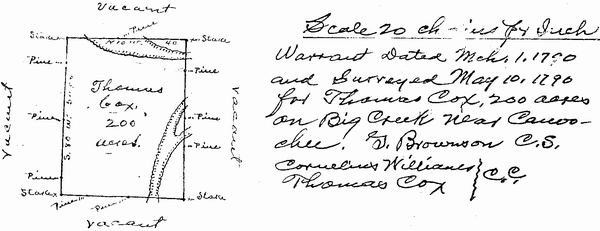 vacant
Pine
Stake
N 10 W.
40
Stake
Pine
Pine
vacant
Thomas
Cox,
200
acres.
S. 80 W.
Pine
Pine
Pine
vacant
Pine
Stake
Stake
Pine
Pine
vacant
Scale 20 ch-ins pr Inch
Warrant Dated Mch. 1. 1790
and Surveyed May 10. 1790
for Thomas Cox, 200 acres
on Big Creek near Canoo-
chee. T. Brownson C.S.
Cornelius Williams
Thomas Cox } C.C.